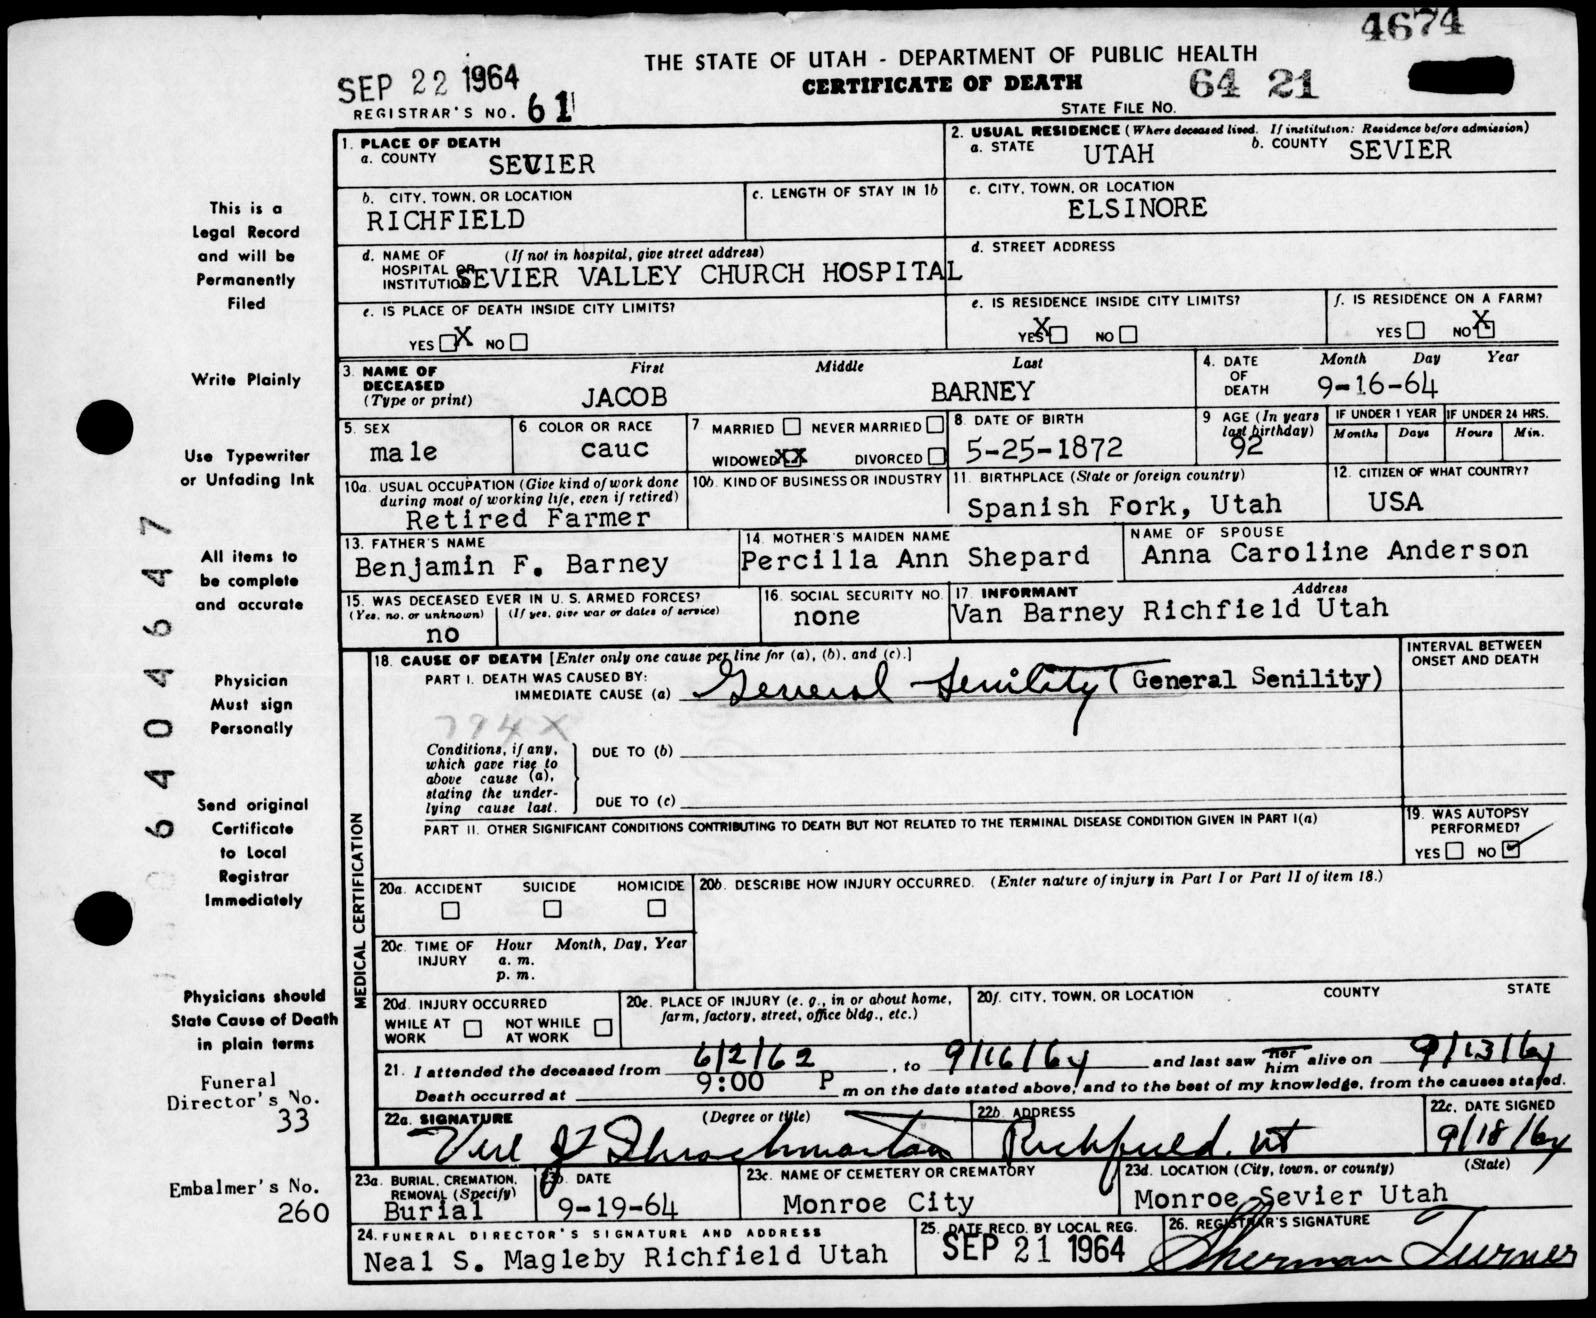 4674
THE STATE OF UTAH - DEPARTMENT OF PUBLIC HEALTH
SEP 22 1964
CERTIFICATE OF DEATH 64 21
REGISTRAR'S NO. 61
STATE FILE NO.
1. PLACE OF DEATH
a. COUNTY SEVIER
2. USUAL RESIDENCE (Where deceased lived. If institution: Residence before admission)
a. STATE UTAH b. COUNTY SEVIER
b. CITY, TOWN, OR LOCATION
RICHFIELD
c. LENGTH OF STAY IN 1b
c. CITY, TOWN, OR LOCATION
ELSINORE
d. NAME OF HOSPITAL OR INSTITUTION (If not in hospital, give street address)
SEVIER VALLEY CHURCH HOSPITAL
d. STREET ADDRESS
e. IS PLACE OF DEATH INSIDE CITY LIMITS?
YES X NO
e. IS RESIDENCE INSIDE CITY LIMITS?
YES X NO
f. IS RESIDENCE ON A FARM?
YES NO X
3. NAME OF DECEASED (Type or print)
First Middle Last
JACOB BARNEY
4. DATE OF DEATH Month Day Year
9-16-64
5. SEX
male
6 COLOR OR RACE
cauc
7 MARRIED NEVER MARRIED
WIDOWED XX DIVORCED
8 DATE OF BIRTH
5-25-1872
9 AGE (In years last birthday)
92
IF UNDER 1 YEAR IF UNDER 24 HRS.
Months Days Hours Min.
10a. USUAL OCCUPATION (Give kind of work done during most of working life, even if retired)
Retired Farmer
10b. KIND OF BUSINESS OR INDUSTRY
11. BIRTHPLACE (State or foreign country)
Spanish Fork, Utah
12. CITIZEN OF WHAT COUNTRY?
USA
13. FATHER'S NAME
Benjamin F. Barney
14. MOTHER'S MAIDEN NAME
Percilla Ann Shepard
NAME OF SPOUSE
Anna Caroline Anderson
15. WAS DECEASED EVER IN U. S. ARMED FORCES?
(Yes, no, or unknown) (If yes, give war or dates of service)
no
16. SOCIAL SECURITY NO.
none
17. INFORMANT Address
Van Barney Richfield Utah
18. CAUSE OF DEATH [Enter only one cause per line for (a), (b), and (c).]
PART I. DEATH WAS CAUSED BY:
IMMEDIATE CAUSE (a) General Senility (General Senility)
INTERVAL BETWEEN ONSET AND DEATH
794X
Conditions, if any, which gave rise to above cause (a), stating the underlying cause last.
DUE TO (b)
DUE TO (c)
PART II. OTHER SIGNIFICANT CONDITIONS CONTRIBUTING TO DEATH BUT NOT RELATED TO THE TERMINAL DISEASE CONDITION GIVEN IN PART I(a)
19. WAS AUTOPSY PERFORMED?
YES NO ✓
MEDICAL CERTIFICATION
20a. ACCIDENT SUICIDE HOMICIDE
20b. DESCRIBE HOW INJURY OCCURRED. (Enter nature of injury in Part I or Part II of item 18.)
20c. TIME OF INJURY Hour Month, Day, Year
a. m.
p. m.
20d. INJURY OCCURRED
WHILE AT WORK NOT WHILE AT WORK
20e. PLACE OF INJURY (e. g., in or about home, farm, factory, street, office bldg., etc.)
20f. CITY, TOWN, OR LOCATION COUNTY STATE
21. I attended the deceased from 6/2/62, to 9/16/64 and last saw her him alive on 9/13/64
Death occurred at 9:00 P m on the date stated above, and to the best of my knowledge, from the causes stated.
22a. SIGNATURE (Degree or title)
22b. ADDRESS
Richfield, Ut
22c. DATE SIGNED
9/18/64
23a. BURIAL, CREMATION, REMOVAL (Specify)
Burial
23b. DATE
9-19-64
23c. NAME OF CEMETERY OR CREMATORY
Monroe City
23d. LOCATION (City, town, or county) (State)
Monroe Sevier Utah
24. FUNERAL DIRECTOR'S SIGNATURE AND ADDRESS
Neal S. Magleby Richfield Utah
25. DATE RECD. BY LOCAL REG.
SEP 21 1964
26. REGISTRAR'S SIGNATURE
Sherman Turner
This is a
Legal Record
and will be
Permanently
Filed
Write Plainly
Use Typewriter
or Unfading Ink
All items to
be complete
and accurate
Physician
Must sign
Personally
Send original
Certificate
to Local
Registrar
Immediately
Physicians should
State Cause of Death
in plain terms
Funeral
Director's No.
33
Embalmer's No.
260
6404647